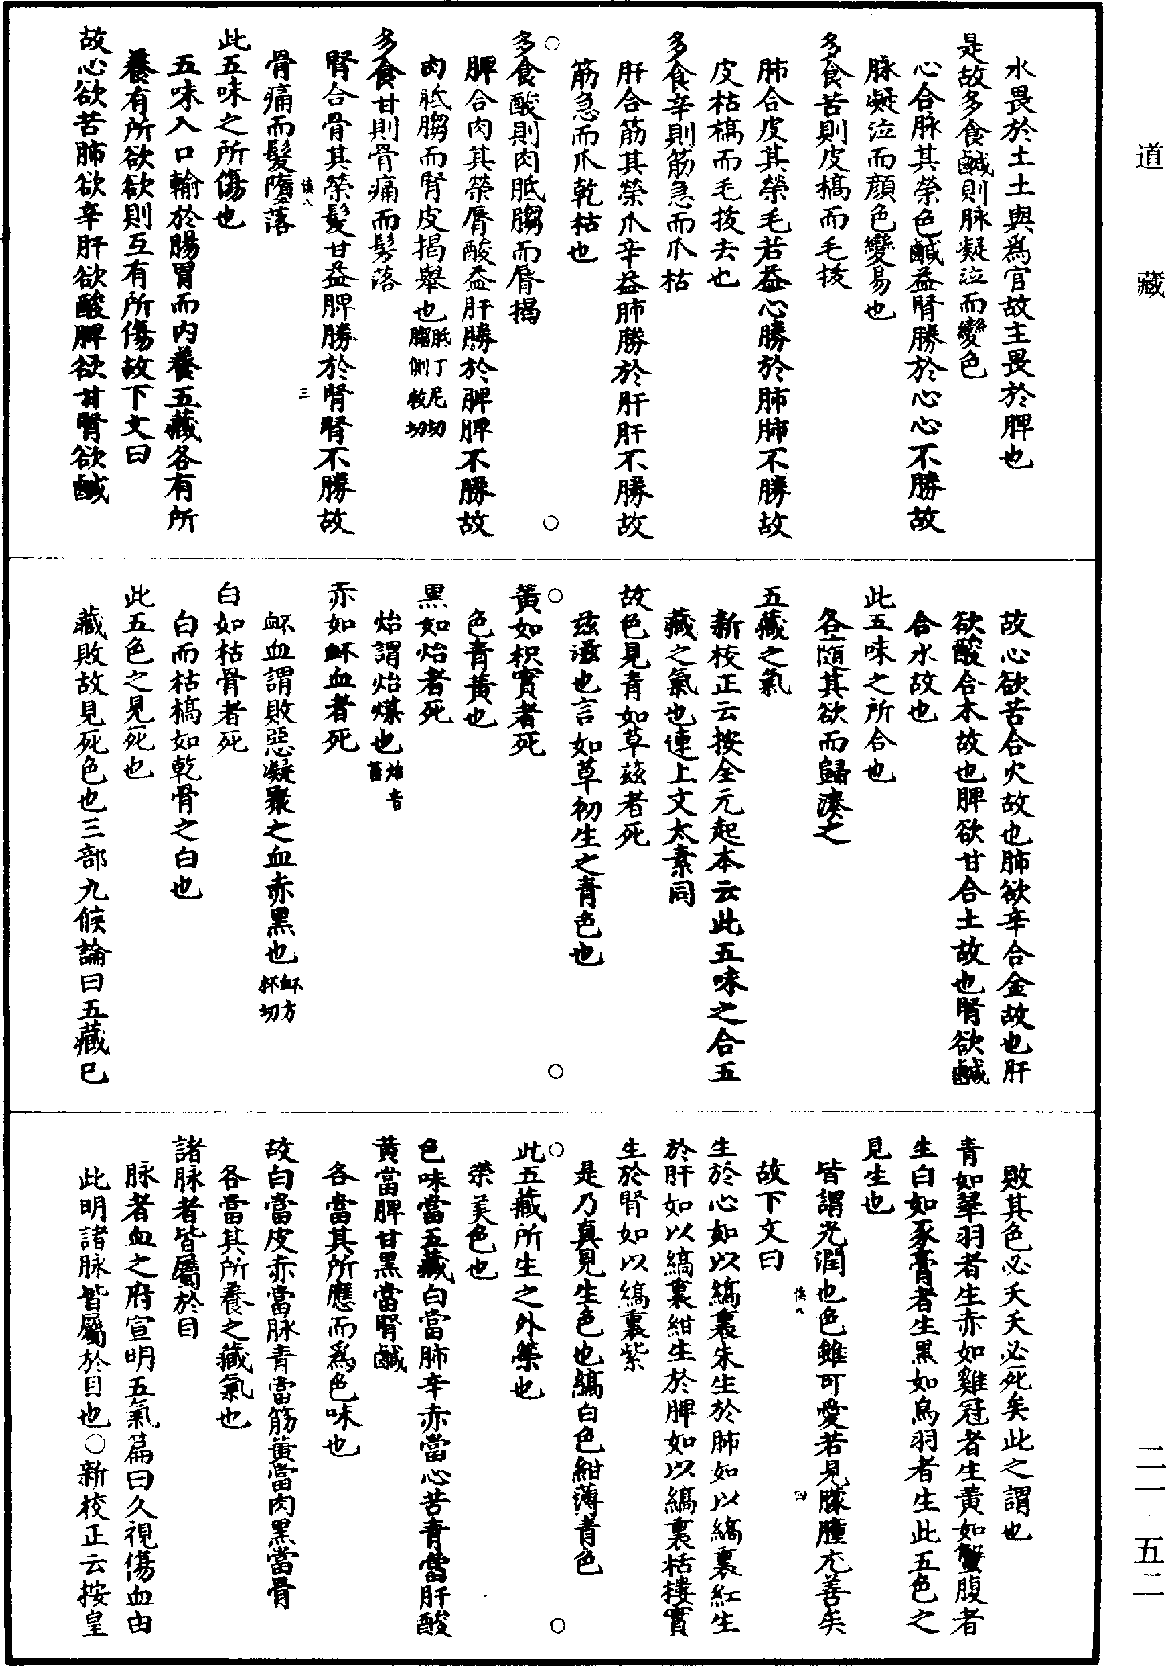 道藏
二一·五二
水畏於土土與爲官故主畏於脾也
是故多食鹹則脉凝泣而變色
心合脉其榮色鹹益腎勝於心心不勝故
脉凝泣而顏色變易也
多食苦則皮槁而毛拔
肺合皮其榮毛苦益心勝於肺肺不勝故
皮枯槁而毛拔去也
多食辛則筋急而爪枯
肝合筋其榮爪辛益肺勝於肝肝不勝故
筋急而爪乾枯也
○多食酸則肉胝䐢而脣揭○
脾合肉其榮脣酸益肝勝於脾脾不勝故
肉胝䐢而脣皮揭舉也胝丁尼切䐢側救切
多食甘則骨痛而髮落
腎合骨其榮髮甘益脾勝於腎腎不勝故
骨痛而髮墮落
此五味之所傷也
五味入口輸於腸胃而内養五藏各有所
養有所欲欲則互有所傷故下文曰
故心欲苦肺欲辛肝欲酸脾欲甘腎欲鹹
故心欲苦合火故也肺欲辛合金故也肝
欲酸合木故也脾欲甘合土故也腎欲鹹
合水故也
此五味之所合也
各隨其欲而歸湊之
五藏之氣
新校正云按全元起本云此五味之合五
藏之氣也連上文太素同
故色見青如草茲者死
茲滋也言如草初生之青色也
○黃如枳實者死○
色青黃也
黑如炲者死
炲謂炲煤也炲音苔
赤如衃血者死
衃血謂敗惡凝聚之血赤黑也衃方杯切
白如枯骨者死
白而枯槁如乾骨之白也
此五色之見死也
藏敗故見死色也三部九候論曰五藏已
敗其色必夭夭必死矣此之謂也
青如翠羽者生赤如雞冠者生黃如蟹腹者
生白如豕膏者生黑如烏羽者生此五色之
見生也
皆謂光潤也色雖可愛若見朦朧尤善矣
故下文曰
生於心如以縞裹朱生於肺如以縞裹紅生
於肝如以縞裹紺生於脾如以縞裹栝樓實
生於腎如以縞裹紫
是乃真見生色也縞白色紺薄青色
○此五藏所生之外榮也○
榮美色也
色味當五藏白當肺辛赤當心苦青當肝酸
黃當脾甘黑當腎鹹
各當其所應而爲色味也
故白當皮赤當脉青當筋黃當肉黑當骨
各當其所養之藏氣也
諸脉者皆屬於目
脉者血之府宣明五氣篇曰久視傷血由
此明諸脉皆屬於目也○新校正云按皇